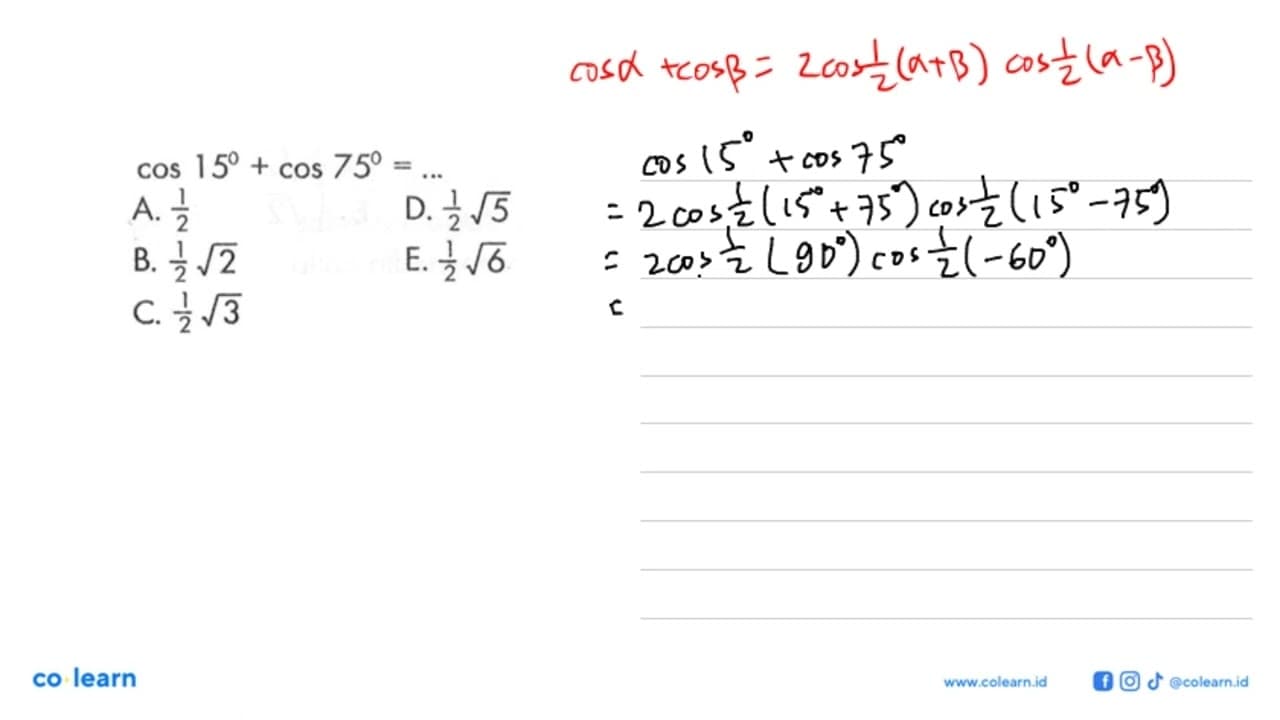 cosα + cosβ = 2cos½(α+β) cos½(α-β)
cos 15⁰ + cos 75⁰ = ...
A. ½
B. ½√2
C. ½√3
D. ½√5
E. ½√6
cos 15° + cos 75°
= 2 cos ½ (15° + 75°) cos ½ (15° - 75°)
= 2cos ½ (90°) cos ½ (-60°)
=
co learn
www.colearn.id @colearn.id